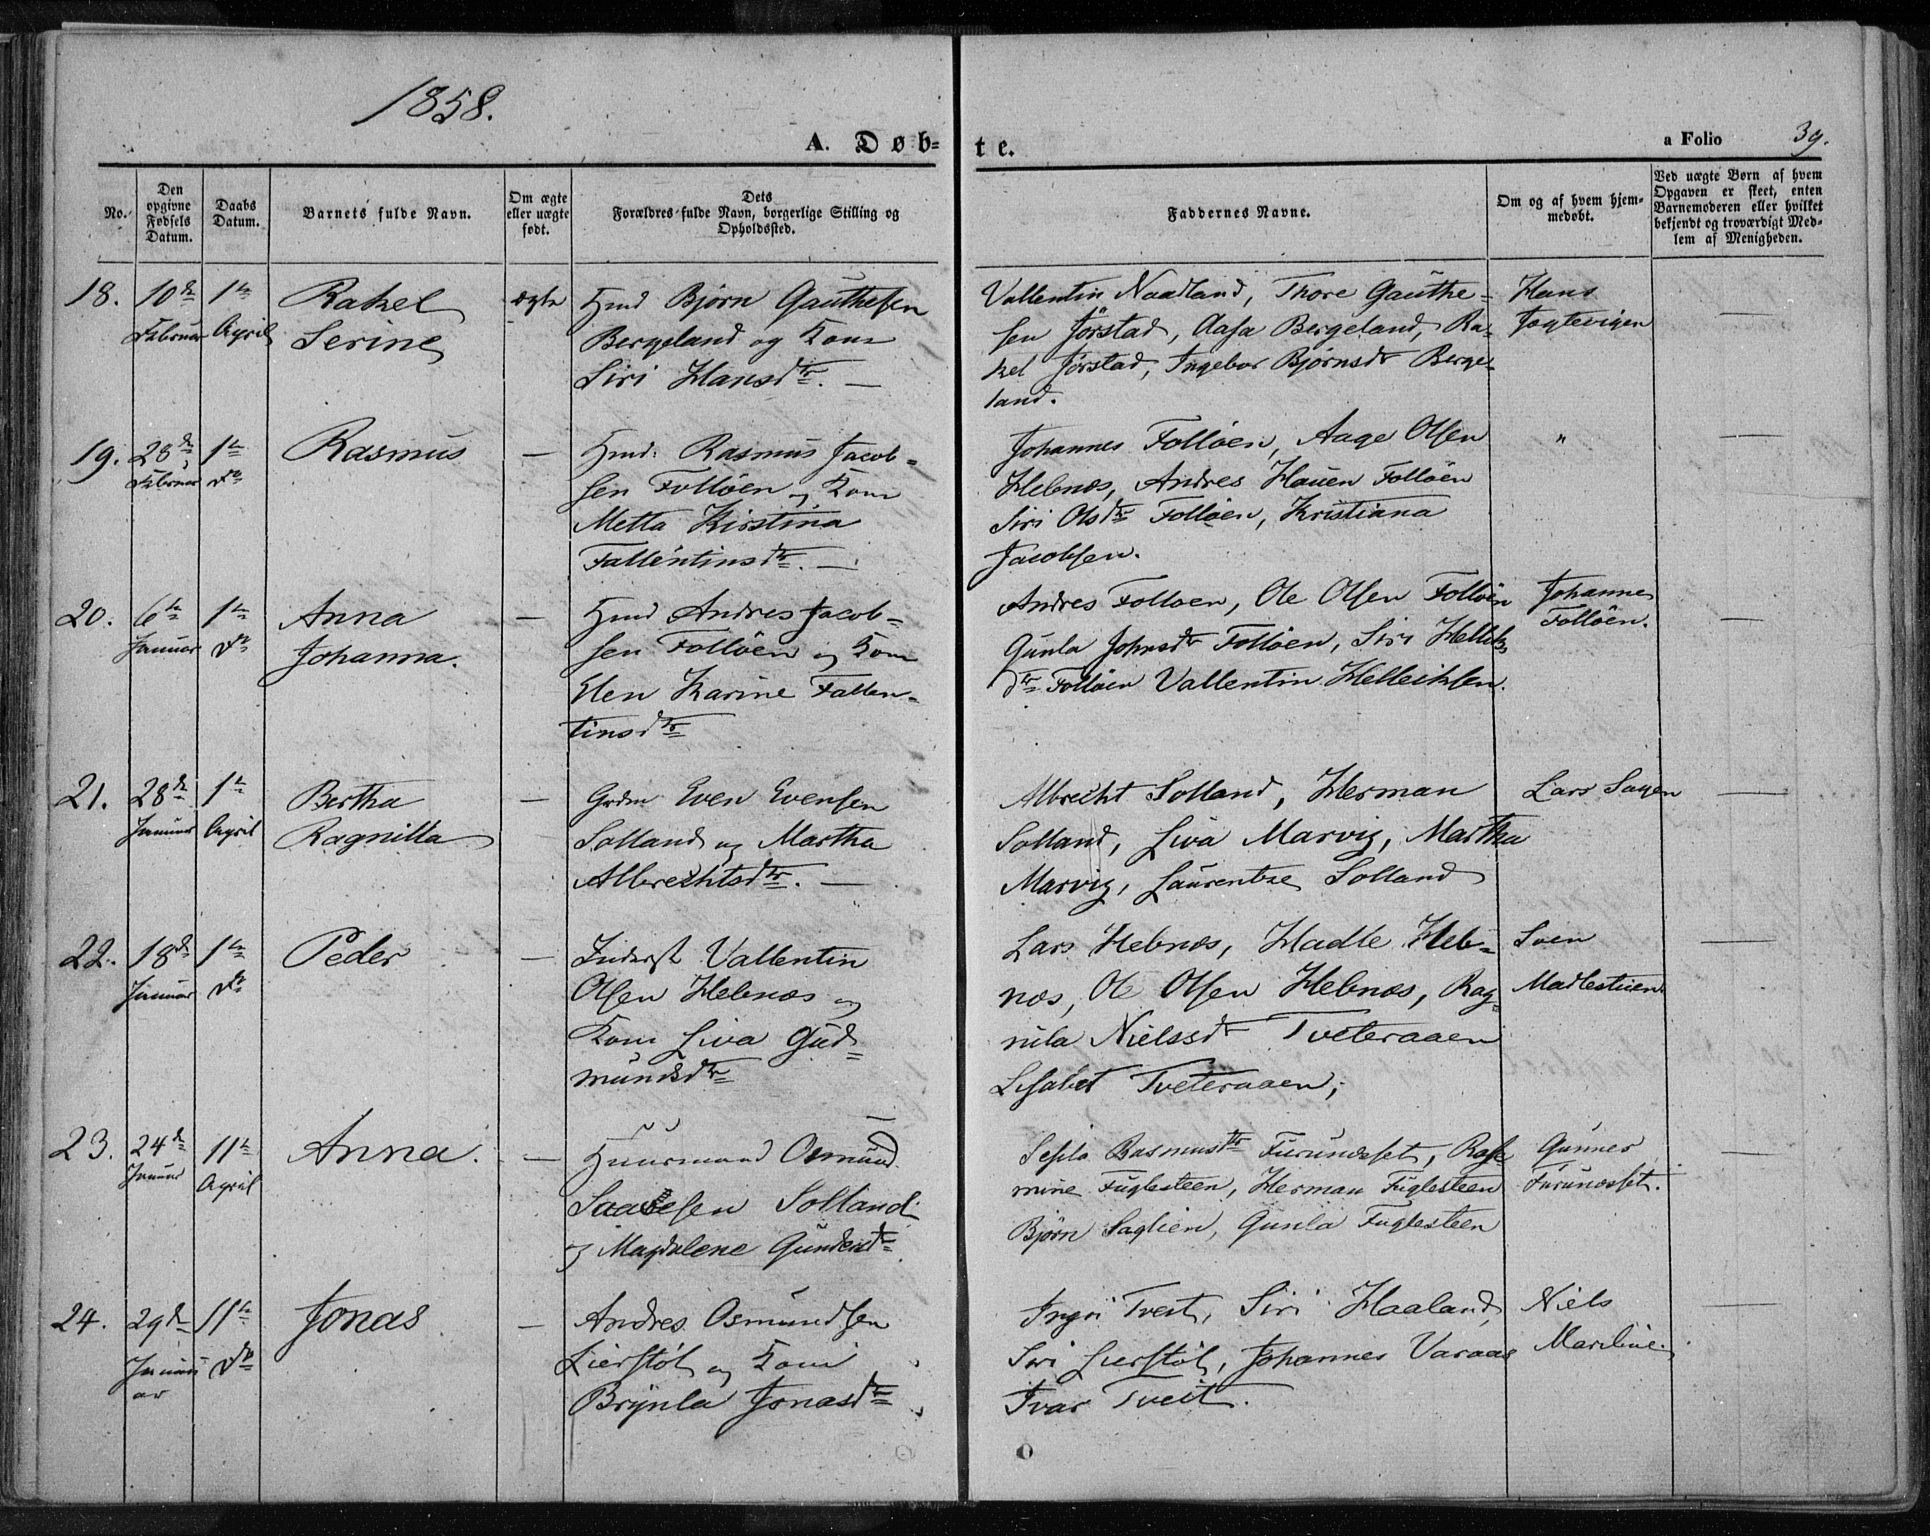 1858.
A. Døb-
te.
a Folio 39.
No.
Den opgivne Fødsels Datum.
Daabs Datum.
Barnets fulde Navn.
Om ægte eller uægte født.
Dets Forældres fulde Navn, borgerlige Stilling og Opholdssted.
Faddernes Navne.
Om og af hvem hjemmedøbt.
Ved uægte Børn af hvem Opgaven er skeet, enten Barnemoderen eller hvilket bekjendt og troværdigt Medlem af Menigheden.
18. 10de Februar
1te April
Rakel
Serine
ægte
Hmd Bjørn Gauthesen
Bergeland og Kone
Siri Hansdtr. —
Vallentin Naadland, Thore Gauthe-
sen Jørstad, Aasa Bergeland, Ra-
kel Jørstad, Ingebor Bjørnsdr Berge-
land.
Hans
Jegtevigen
—
19. 28de Februar
1te do
Rasmus
—
Hmd: Rasmus Jacob-
sen Folløen og Kone
Metta Kirstina
Fallentinsdtr. —
Johannes Folløen, Aage Olsen
Helenæs, Andres Hauen Folløen
Siri Olsdtr Folløen, Kristiana
Jacobsen.
"
—
20. 6te Januar
1te do
Anna
Johanna.
—
Hmd Andres Jacob-
sen Folløen og Kone
Elen Karine Fallen-
tinsdtr
Andres Folloen, Ole Olsen Folløen
Gunla Johnsdr Folløen, Siri Helliks
dtr Folløen Vallentin Helleiksen.
Johannes
Folløen.
—
21. 28de Januar
1te April
Bertha
Ragnilla
—
Grdm Even Evensen
Solland og Martha
Albrechtsdtr. —
Albrecht Solland, Herman
Solland, Liva Marvig, Martha
Marvig, Laurentze Solland
Lars Sagen
—
22. 18de Januar
1te do
Peder
—
Inderst Vallentin
Olsen Helenæs og
Kone Liva Gud-
mundsdtr
Lars Helenæs, Hadle Hele-
næs, Ole Olsen Helenæs, Rag-
nila Nielssdr Tveteraaen
Lisabet Tveteraaen;
Sven
Madlestuen
—
23. 24de Januar
11te April
Anna.
—
Huusmand Osmund
Saavesen Solland
og Magdalene Gundersdtr
Sesila Rasmusdtr Furuneset, Ras-
mine Fuglesteen, Herman Fuglesteen
Bjørn Saglien, Gunla Fuglesteen
Gunner
Furuneset.
—
24. 29de Janu
ar
11te do
Jonas
—
Andres Osmundsen
Lierstøl og Kone
Brynla Jonasdtr
Ingri Tveit, Siri Haaland,
Siri Lierstøl, Johannes Varaas
Ivar Tveit.
Niels
—